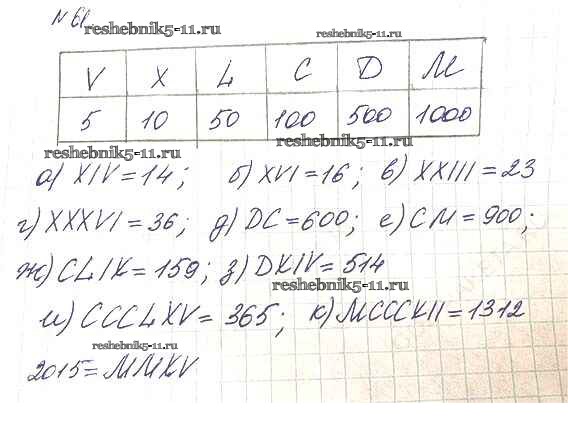 № 61
reshebnik5-11.ru
reshebnik5-11.ru
V X L C D M
5 10 50 100 500 1000
reshebnik5-11.ru
reshebnik5-11.ru
а) XIV = 14; б) XVI = 16; в) XXIII = 23
г) XXXVI = 36; д) DC = 600; е) CM = 900;
ж) CLIX = 159; з) DXIV = 514
reshebnik5-11.ru
и) CCCLXV = 365; к) MCCCXII = 1312
reshebnik5-11.ru
2015 = MMXV